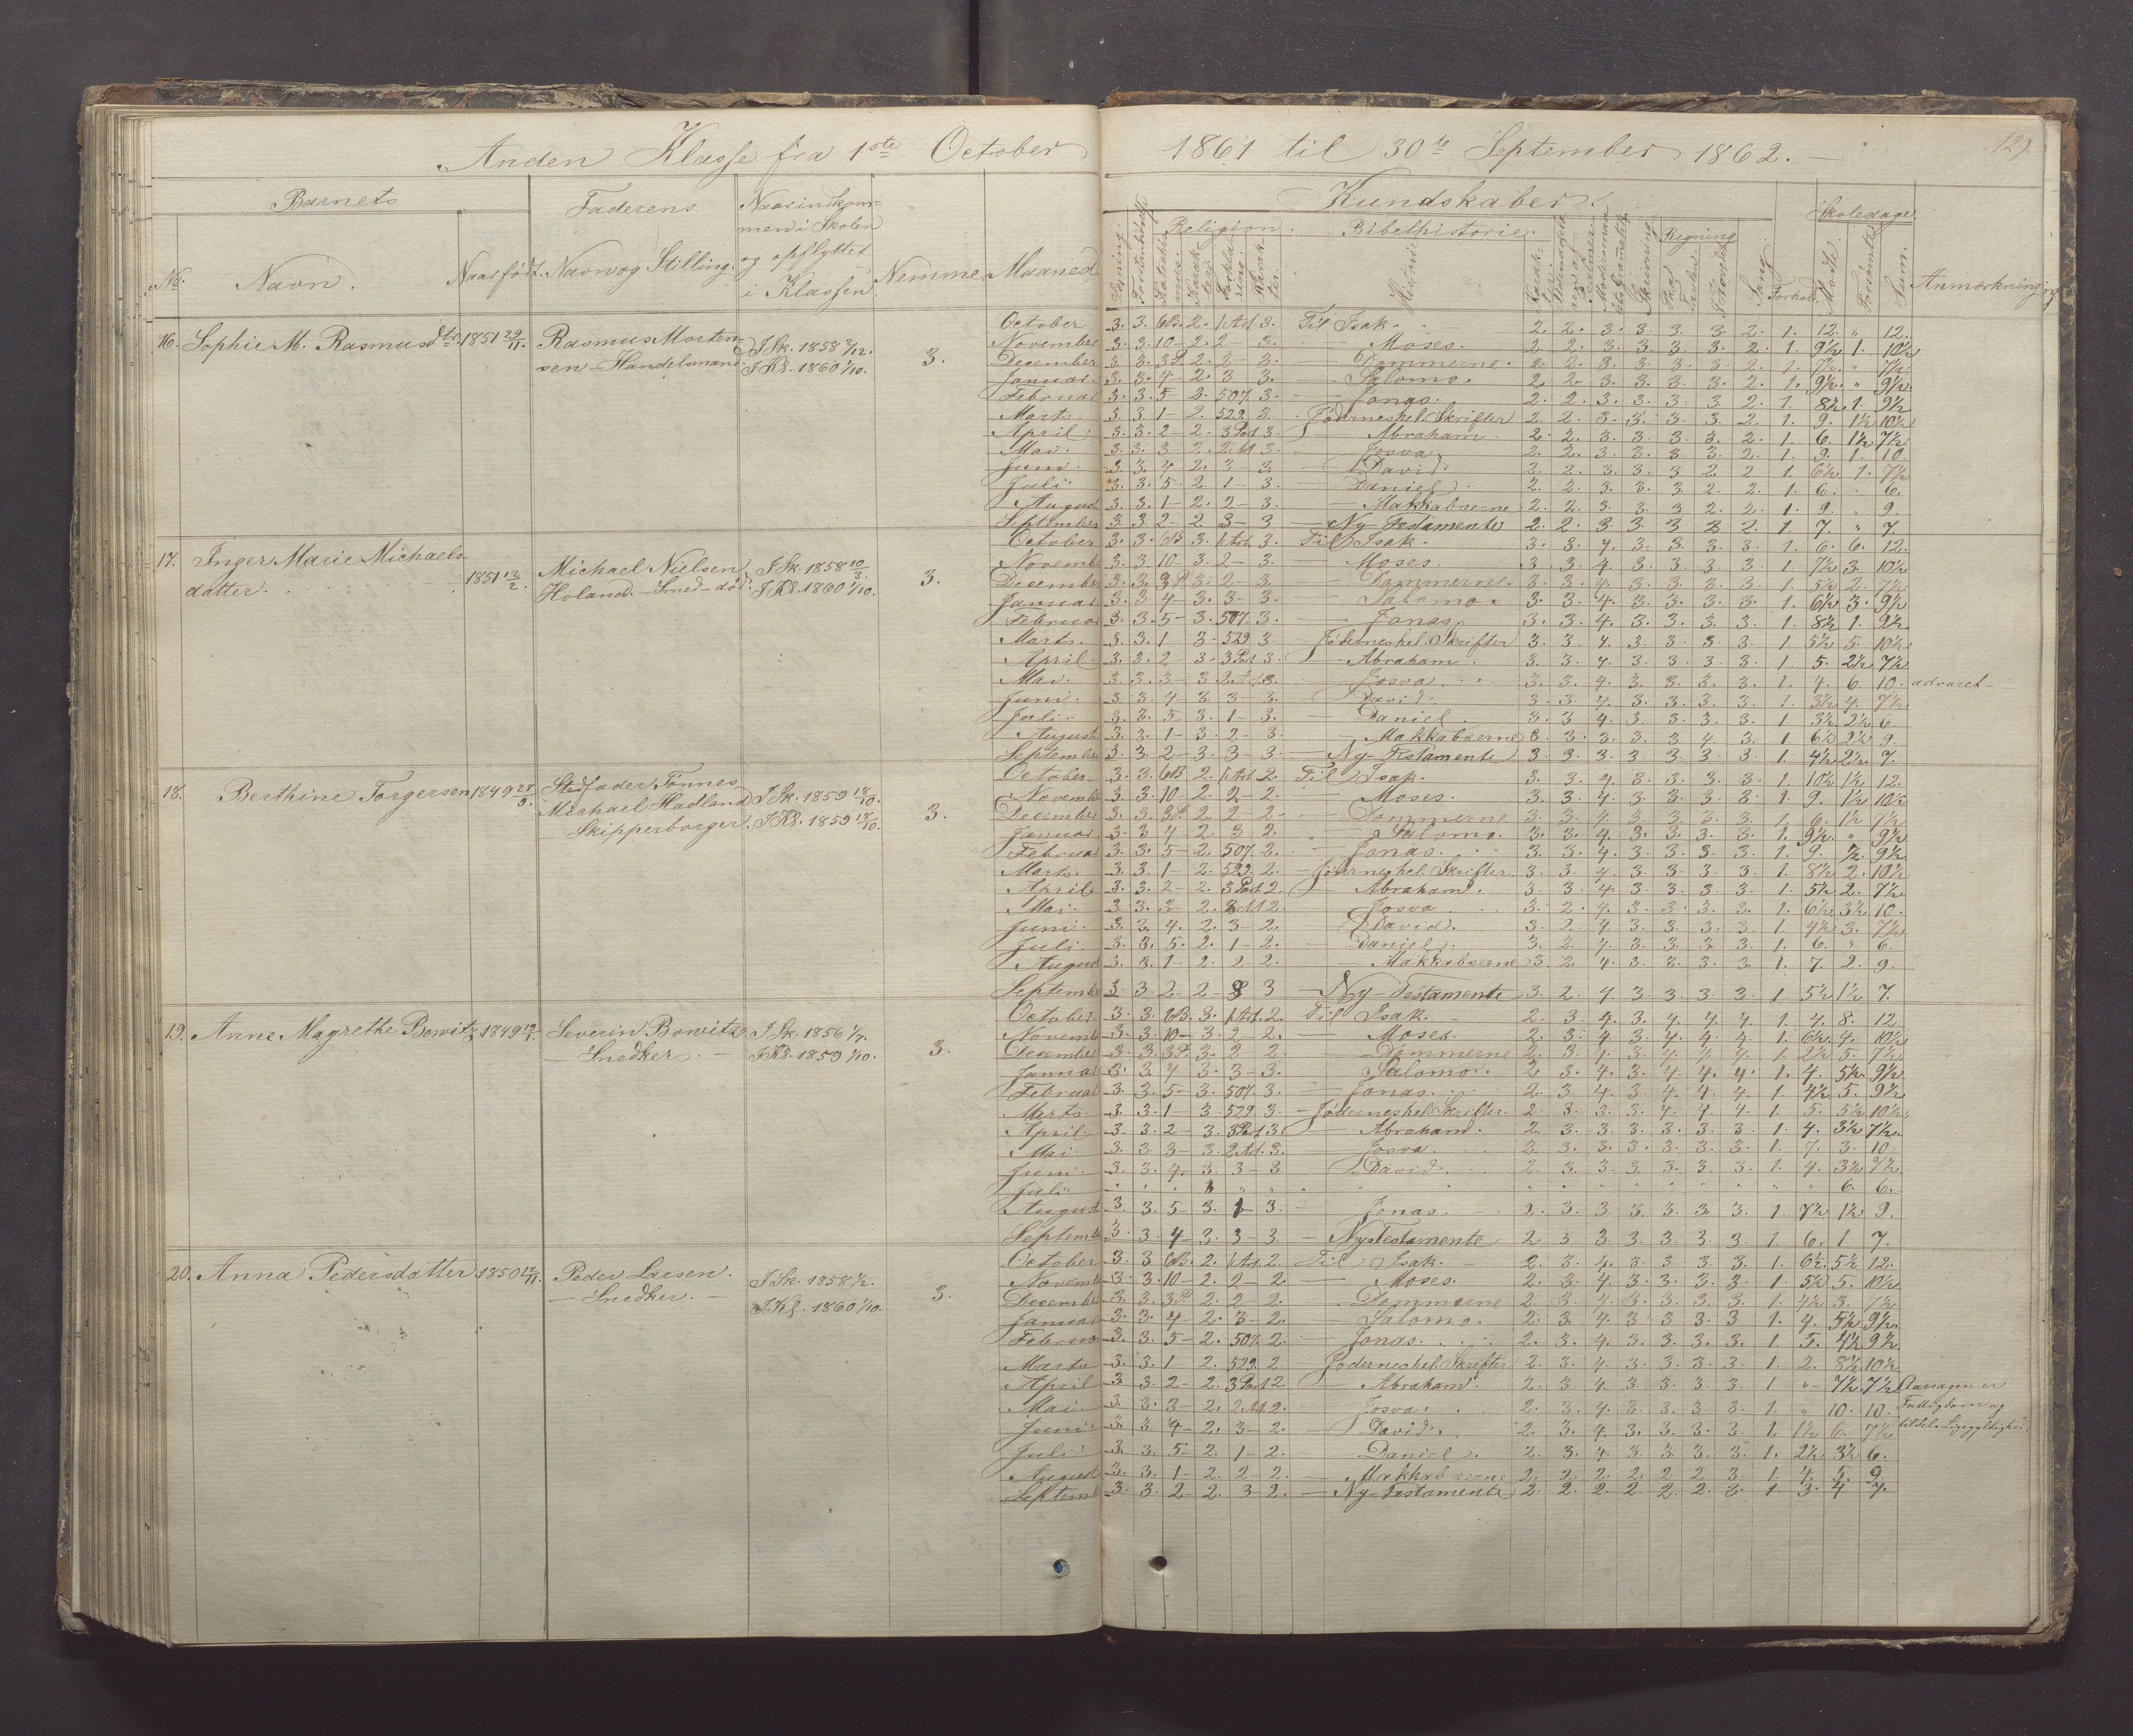 Anden Klasse fra 1ste October 1861 til 30te September 1862.
129.
Barnets
Faderens
Naar indkom-
men i Skolen
og opflyttet
i Klassen
Nemme
Maaned
No.
Navn.
Naar født.
Navn og Stilling.
Kundskaber.
Religion.
Bibelhistorie.
Historie
Regning
Sang.
Forhold.
Skoledage
Mødte.
Forsømte
Sum.
Anmærkning
16. Sophie M. Rasmusdtr. 1851 29/11. Rasmus Morten-
sen - Handelsmand.
I Sk. 1858 2/12.
I Kl. 1860 1/10.
3.
October 3. 3. 6B. 2. 1 Art. 3. Til Isak. 2. 2. 3. 3. 3. 3. 2. 1. 12. " 12.
November 3. 3. 10 - 2. 2 - 3. — Moses. 2. 2. 3. 3. 3. 3. 2. 1. 9½ 1. 10½
December 3. 3. 3P. 2. 2 - 3. — Dommerne. 2. 2. 3. 3. 3. 3. 2. 1. 7½ " 7½
Januar. 3. 3. 4 - 2. 3 3. — Salomo. 2. 2. 3. 3. 3. 3. 2. 1. 9½ " 9½
Februar 3. 3. 5 - 2. 507. 3. — Jonas. 2. 2. 3. 3. 3. 3. 2. 1. 8½ 1. 9½
Marts. 3. 3. 1 - 2. 529. 3. — Jødernes hel. Skrifter 2. 2. 3. 3. 3. 3. 2. 1. 9. 1½ 10½
April. 3. 3. 2 - 2. 3 Part 3. — Abraham. 2. 2. 3. 3. 3. 3. 2. 1. 6. 1½ 7½
Mai. 3. 3. 3 - 2. 2 Art 3. — Josva. 2. 2. 3. 3. 3. 3. 2. 1. 9. 1. 10.
Juni. 3. 3. 4 - 2. 3 - 3. — David. 2. 2. 3. 3. 3 2 2 1. 6½ 1. 7½
Juli. 3. 3. 5 - 2. 1 - 3. — Daniel. 2. 2. 3. 3. 3 2. 2. 1. 6. 6.
August 3. 3. 1 - 2. 2 - 3. — Makkabæerne 2. 2. 3. 3. 3 2 2. 1. 9. 9.
September 3. 3. 2 - 2. 3 - 3 — Ny-Testamente 2. 2. 3. 3. 3 2 2 1. 7. " 7
17. Inger Marie Michaels-
datter. 1851 12/2.
Michael Nielsen
Holand. - Smed - død.
I Sk. 1858 10/3.
I Kl. 1860 1/10.
3.
October 3. 3. 6B 3. 1 Art. 3. Til Isak. 3. 3. 4. 3. 3. 3. 3. 1. 6. 6. 12.
Novemb 3. 3. 10 3. 2 - 3. — Moses. 3. 3. 4. 3. 3. 3. 3. 1. 7½ 3. 10½
December 3. 3. 3P. 3. 2 - 3. — Dommerne. 3. 3. 4. 3. 3. 3. 3. 1. 5½ 2. 7½
Januar 3. 3. 4 - 3. 3 - 3. — Salomo. 3. 3. 4. 3. 3. 3. 3. 1. 6½ 3. 9½
Februar 3. 3. 5 - 3. 507. 3. — Jonas. 3. 3. 4. 3. 3. 3. 3. 1. 8½ 1. 9½
Marts. 3. 3. 1 3. 529 3. — Jødernes hel. Skrifter 3. 3. 4. 3. 3. 3. 3. 1. 5½ 5. 10½
April. 3. 3. 2 - 3. 3 Part 3. — Abraham. 3. 3. 4. 3. 3. 3. 3. 1. 5. 2½ 7½
Mai. 3. 3. 3 - 3. 2 Art. 3. — Josva. 3. 3. 4. 3. 3. 3. 3. 1. 4. 6. 10. advaret -
Juni. 3. 3. 4 3. 3 - 3. — David. 3. 3. 4. 3. 3. 3. 3. 1. 3½ 4. 7½
Juli. 3. 3. 5 3. 1 - 3. — Daniel. 3. 3 4. 3. 3. 3. 3. 1 3½ 2½ 6.
August 3. 3. 1 - 3. 2 - 3. — Makkabæerne 3. 3. 3. 3. 3 4. 3. 1. 6½ 2½ 9.
September 3. 3. 2 - 3. 3 - 3. — Ny-Testamente 3. 3. 3. 3. 3. 3. 3. 1. 4½ 2½ 7.
18. Berthine Torgersen 1849
Stedfader Tönnes
Michael Hadland
- Skipperborger.
I Sk. 1859 18/10.
I Kl. 1859 18/10.
3.
October. 3. 3. 6B 2. 1 Art. 2. Til Isak. 3. 3. 4. 3. 3. 3. 3. 1. 10½ 1½ 12.
Novemb 3. 3. 10 - 2. 2 - 2. — Moses. 3. 3. 4. 3. 3. 3. 3. 1. 9. 1½ 10½
December 3. 3. 3P. 2. 2 2 — Dommerne 3. 3. 4. 3. 3. 3. 3. 1. 6. 1½ 7½
Januar 3. 3 4 2. 3 2. — Salomo. 3. 3. 4. 3. 3. 3. 3. 1. 9½ " 9½
Februar 3. 3. 5 - 2. 507. 2. — Jonas. 3. 3. 4. 3. 3. 3. 3. 1. 9. ½ 9½
Marts. 3. 3. 1 - 2. 529. 2. — Jødernes hel. Skrifter. 3. 3. 4. 3. 3. 3. 3. 1. 8½ 2. 10½
April 3. 3. 2 - 2. 3 Part 2. — Abraham. 3. 3. 4. 3. 3. 3. 3. 1. 5½ 2. 7½
Mai. 3. 3. 3 - 2. 2 Art 2. — Josva. 3. 2. 4. 3. 3. 3. 3. 1. 6½ 3½ 10.
Juni. 3. 3. 4. 2. 3 - 2. — David. 3. 2. 4. 3. 3. 3. 3. 1. 4½ 3. 7½
Juli. 3. 3. 5. 2. 1 - 2. — Daniel. 3. 2. 4. 3. 3. 3. 3. 1. 6. " 6.
August 3. 3. 1 - 2. 2 - 2. — Makkabæerne 3. 2 4. 3. 3. 3. 3. 1. 7. 2. 9.
Septemb 3. 3. 2 - 2 - 3 3 — Ny-Testamente 3. 2. 4. 3. 3. 3. 3. 1. 5½ 1½ 7.
19. Anne Magrethe Bowitz 1849
Severin Bowitz
- Snedker. -
I Sk. 1856
I Kl. 1859 1/10.
3.
October. 3. 3. 6B. 3. 1 Art. 2. Til Isak. 2. 3. 4. 3. 4. 4. 4. 1. 4. 8. 12.
Novemb 3. 3. 10 - 3. 2 - 2. — Moses. 2. 3. 4. 3. 4. 4. 4. 1. 6½ 4. 10½
December 3. 3. 3P. 3. 2 2. — Dommerne 2. 3. 4. 3. 4. 4. 4. 1. 2½ 5. 7½
Januar 3. 3. 4 3. 3 - 3. — Salomo. 2. 3. 4. 3. 4. 4. 4. 1. 4. 5½ 9½
Februar 3. 3. 5 - 3. 507. 3. — Jonas. 2. 3. 4. 3. 4. 4. 4. 1. 4½ 5. 9½
Marts. 3. 3. 1 3. 529. 3. — Jødernes hel. Skrifter. 2. 3. 3. 3. 4. 4. 4. 1. 5. 5½ 10½
April. 3. 3. 2 - 3. 3 Part 3. — Abraham. 2. 3. 3. 3. 3. 3. 3. 1. 4. 3½ 7½
Mai. 3. 3. 3 - 3. 2 Art. 3. — Josva. 2. 3. 3. 3. 3. 3. 3. 1. 7. 3. 10.
Juni. 3. 3. 4. 3. 3 - 3 — David. 2. 3. 3. 3. 3. 3. 3. 1. 4. 3½ 7½
Juli. " " " " " " " 6. 6.
August 3. 3. 5 - 3. 1 - 3. — Jonas. 2. 3. 3. 3. 3. 3. 3. 1. 7½ 1½ 9.
Septemb 3. 3. 4 - 3. 3 - 3 — Ny Testamente 2 3 3. 3. 3. 3. 3 1. 6. 1 7.
20. Anna Pedersdatter 1850 12/11.
Peder Larsen.
- Snedker. -
I Sk. 1858 1/2.
I Kl. 1860 1/10.
3.
October 3. 3 6B. 2. 1 Art. 2. Til Isak. 2. 3. 4. 3. 3. 3. 3. 1. 6½ 5½ 12.
Novemb 3. 3. 10 - 2. 2 - 2 — Moses. 2. 3. 4. 3. 3. 3. 3. 1. 5½ 5. 10½
December 3. 3. 3P. 2. 2 - 2. — Dommerne 2. 3. 4. 3. 3. 3. 3. 1. 4½ 3. 7½
Januar 3. 3. 4 - 2. 3 - 2. — Salomo. 2. 3. 4. 3. 3. 3. 3. 1. 4. 5½ 9½
Februar 3. 3. 5 - 2. 507. 2. — Jonas. 2. 3. 4. 3. 3. 3. 3. 1. 5. 4½ 9½
Marts 3. 3. 1 - 2. 529. 2. — Jødernes hel. Skrifter 2. 3. 4. 3. 3. 3. 3. 1. 2. 8½ 10½
April 3. 3. 2 - 2. 3 Part 2. — Abraham. 2. 3. 4. 3. 3. 3. 3. 1. " 7½ 7½ Aarsagen er
Mai 3. 3. 3 - 2. 2 Art. 2. — Josva. 2. 3. 4. 3. 3. 3. 3. 1. " 10. 10. Fattigdom og
Juni 3. 3. 4 - 2. 3 - 2. — David. 2. 3. 4. 3. 3. 3. 3. 1. 1½ 6. 7½ tildels Ligegyldighed.
Juli 3. 3. 5 - 2. 1 - 2. — Daniel. 2. 3. 4. 3. 3. 3. 3. 1. 2½ 3½ 6.
August 3. 3. 1 - 2. 2 - 2. — Makkabæerne 2. 2. 2. 2. 2 2. 3. 1. 4. 5. 9.
Septemb 3. 3. 2 - 2. 3 - 2. — Ny-Testamente 2. 2. 2. 2 2. 2. 3. 1. 3. 4 7.